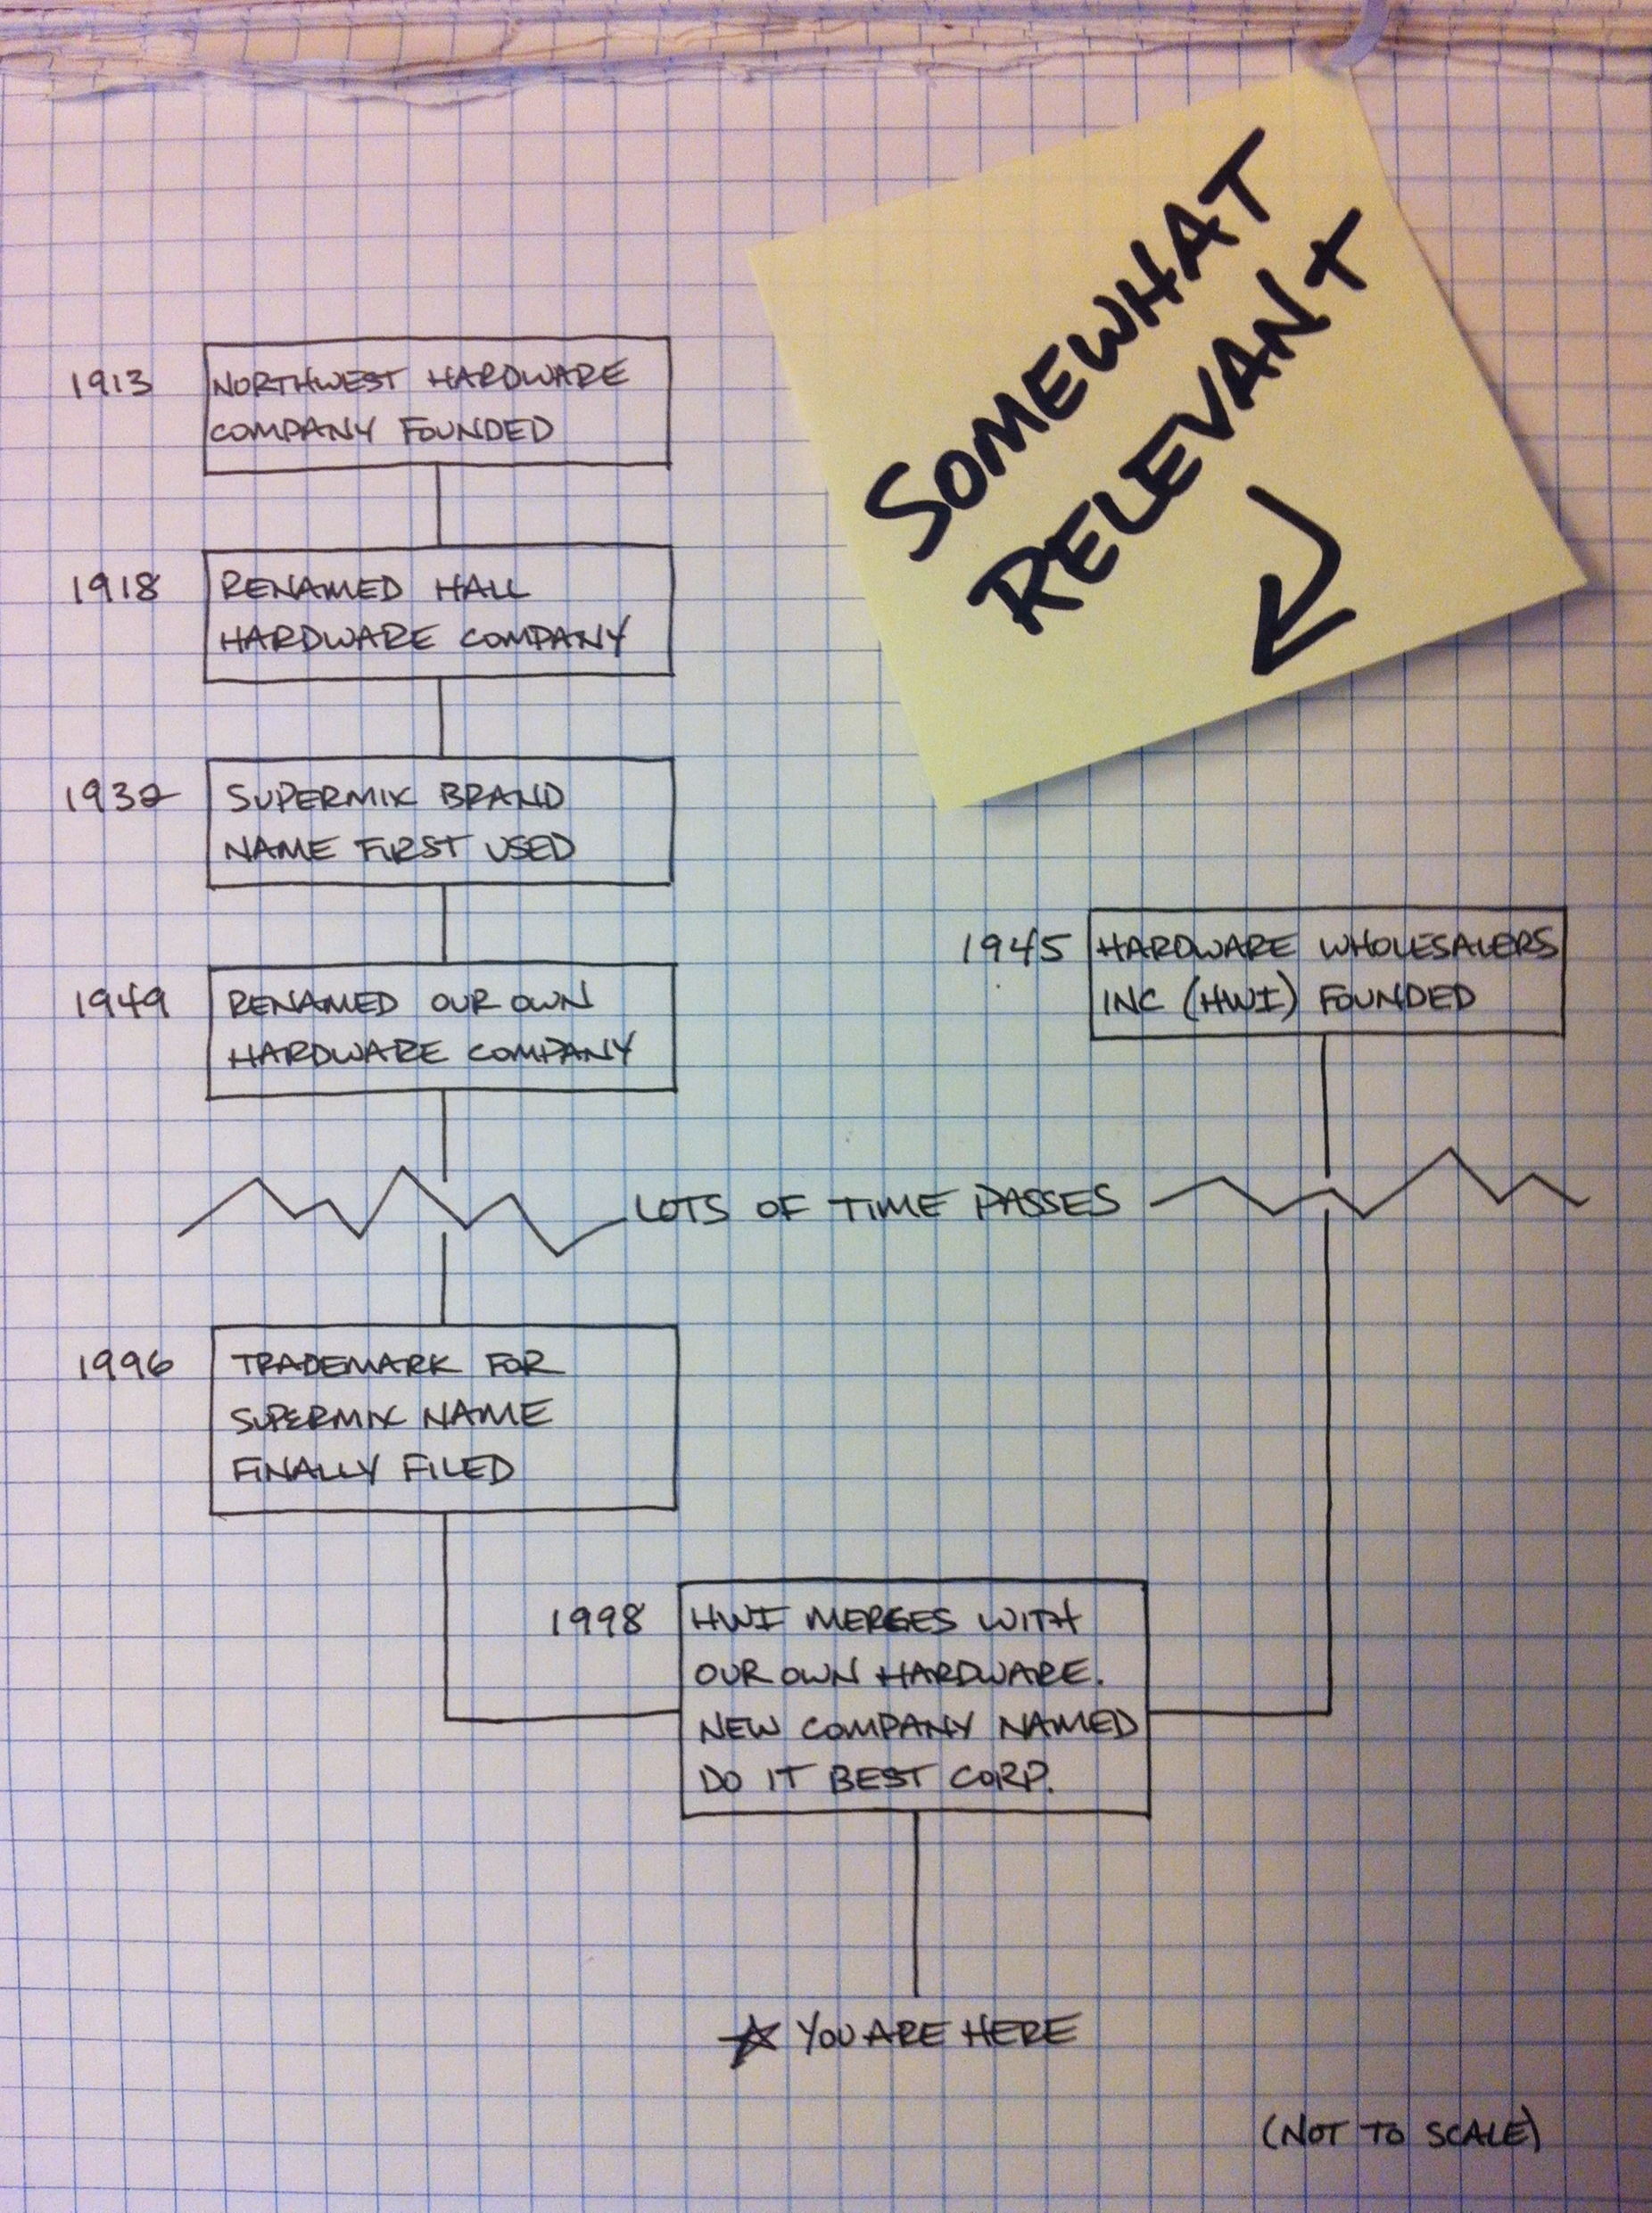 SOMEWHAT
RELEVANT
1913
NORTHWEST HARDWARE
COMPANY FOUNDED
1918
RENAMED HALL
HARDWARE COMPANY
1932
SUPERMIX BRAND
NAME FIRST USED
1949
RENAMED OUR OWN
HARDWARE COMPANY
1945
HARDWARE WHOLESALERS
INC (HWI) FOUNDED
LOTS OF TIME PASSES
1996
TRADEMARK FOR
SUPERMIX NAME
FINALLY FILED
1998
HWI MERGES WITH
OUR OWN HARDWARE.
NEW COMPANY NAMED
DO IT BEST CORP.
YOU ARE HERE
(NOT TO SCALE)